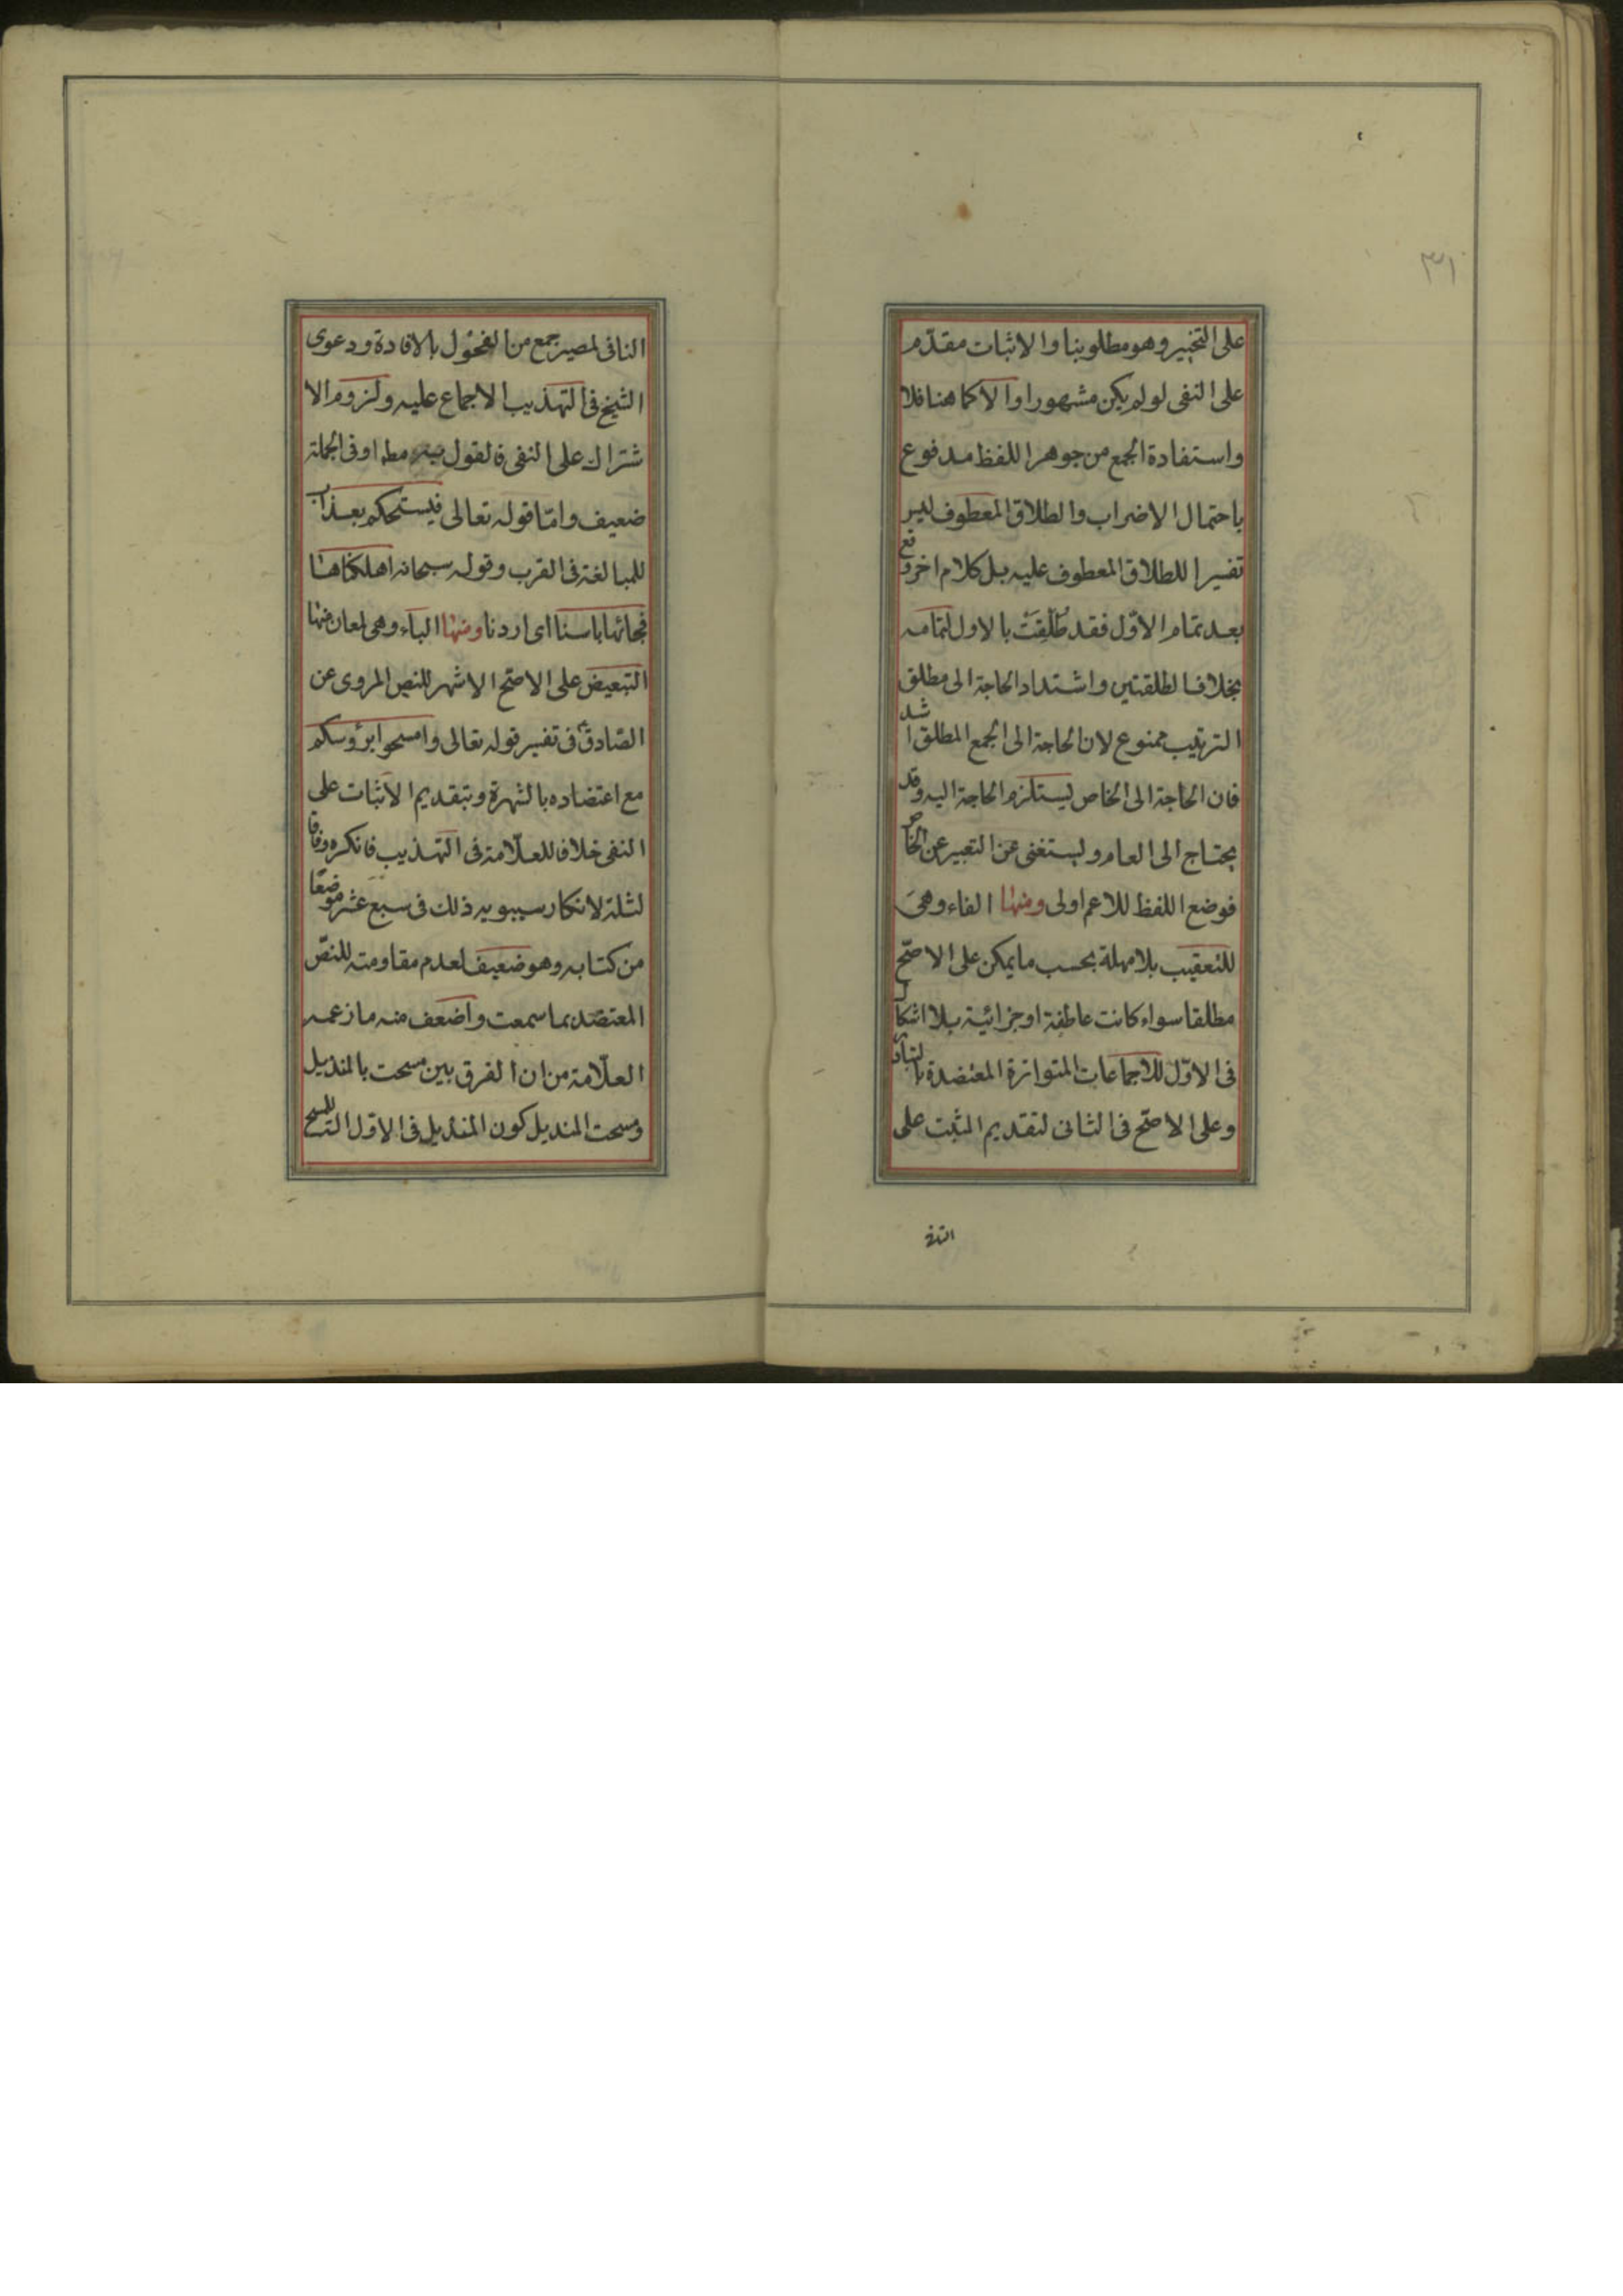 ٣١
على التخيير وهو مطلوبنا والاثبات مقدّم
على النفى لو لم يكن مشهورا والا كما هنا فلا
واستفادة الجمع من جوهر اللفظ مدفوع
باحتمال الاضراب والطلاق المعطوف ليس
تفسيرا للطلاق المعطوف عليه بل كلام اخر وقع
بعد تمام الاوّل فقد طُلِّقَتْ بالاول لتمامه
بخلاف الطلقتين واشتداد الحاجة الى مطلق
الترتيب ممنوع لان الحاجة الى الجمع المطلق اشد
فان الحاجة الى الخاص يستلزم الحاجة اليه وقد
يحتاج الى العام ويستغنى عن التعبير عن الخاص
فوضع اللفظ للاعم اولى ومنها الفاء وهى
للتعقيب بلا مهلة بحسب ما يمكن على الاصّح
مطلقا سواء كانت عاطفة او جزائية بلا اشكال
فى الاوّل للاجماعات المتواترة المعتضدة بالتبادر
وعلى الاصّح فى الثانى لتقديم المثبت على
النافى
النافى لمصير جمع من الفحول بالافادة ودعوى
الشيخ فى التهذيب الاجماع عليه ولزوم الا
شتراك على النفى فالقول مط او فى الجملة
ضعيف وامّا قوله تعالى فيسحتكم بعذاب
للمبالغة فى القرب وقوله سبحانه اهلكناها
فجائها باسنا اى اردنا ومنها الباء وهى لمعان منها
التبعيض على الاصّح الاشهر للنص المروى عن
الصّادق ع فى تفسير قوله تعالى وامسحوا برؤسكم
مع اعتضاده بالشهرة وبتقديم الاثبات على
النفى خلافا للعلّامة فى التهذيب فانكره وفاقا
لثلة لانكار سيبويه ذلك فى سبع عشر موضعًا
من كتابه وهو ضعيف لعدم مقاومته للنصّ
المعتضد بما سمعت واضعف منه ما زعمه
العلّامة من ان الفرق بين مسحت بالمنديل
ومسحت المنديل كون المنديل فى الاوّل للمسح